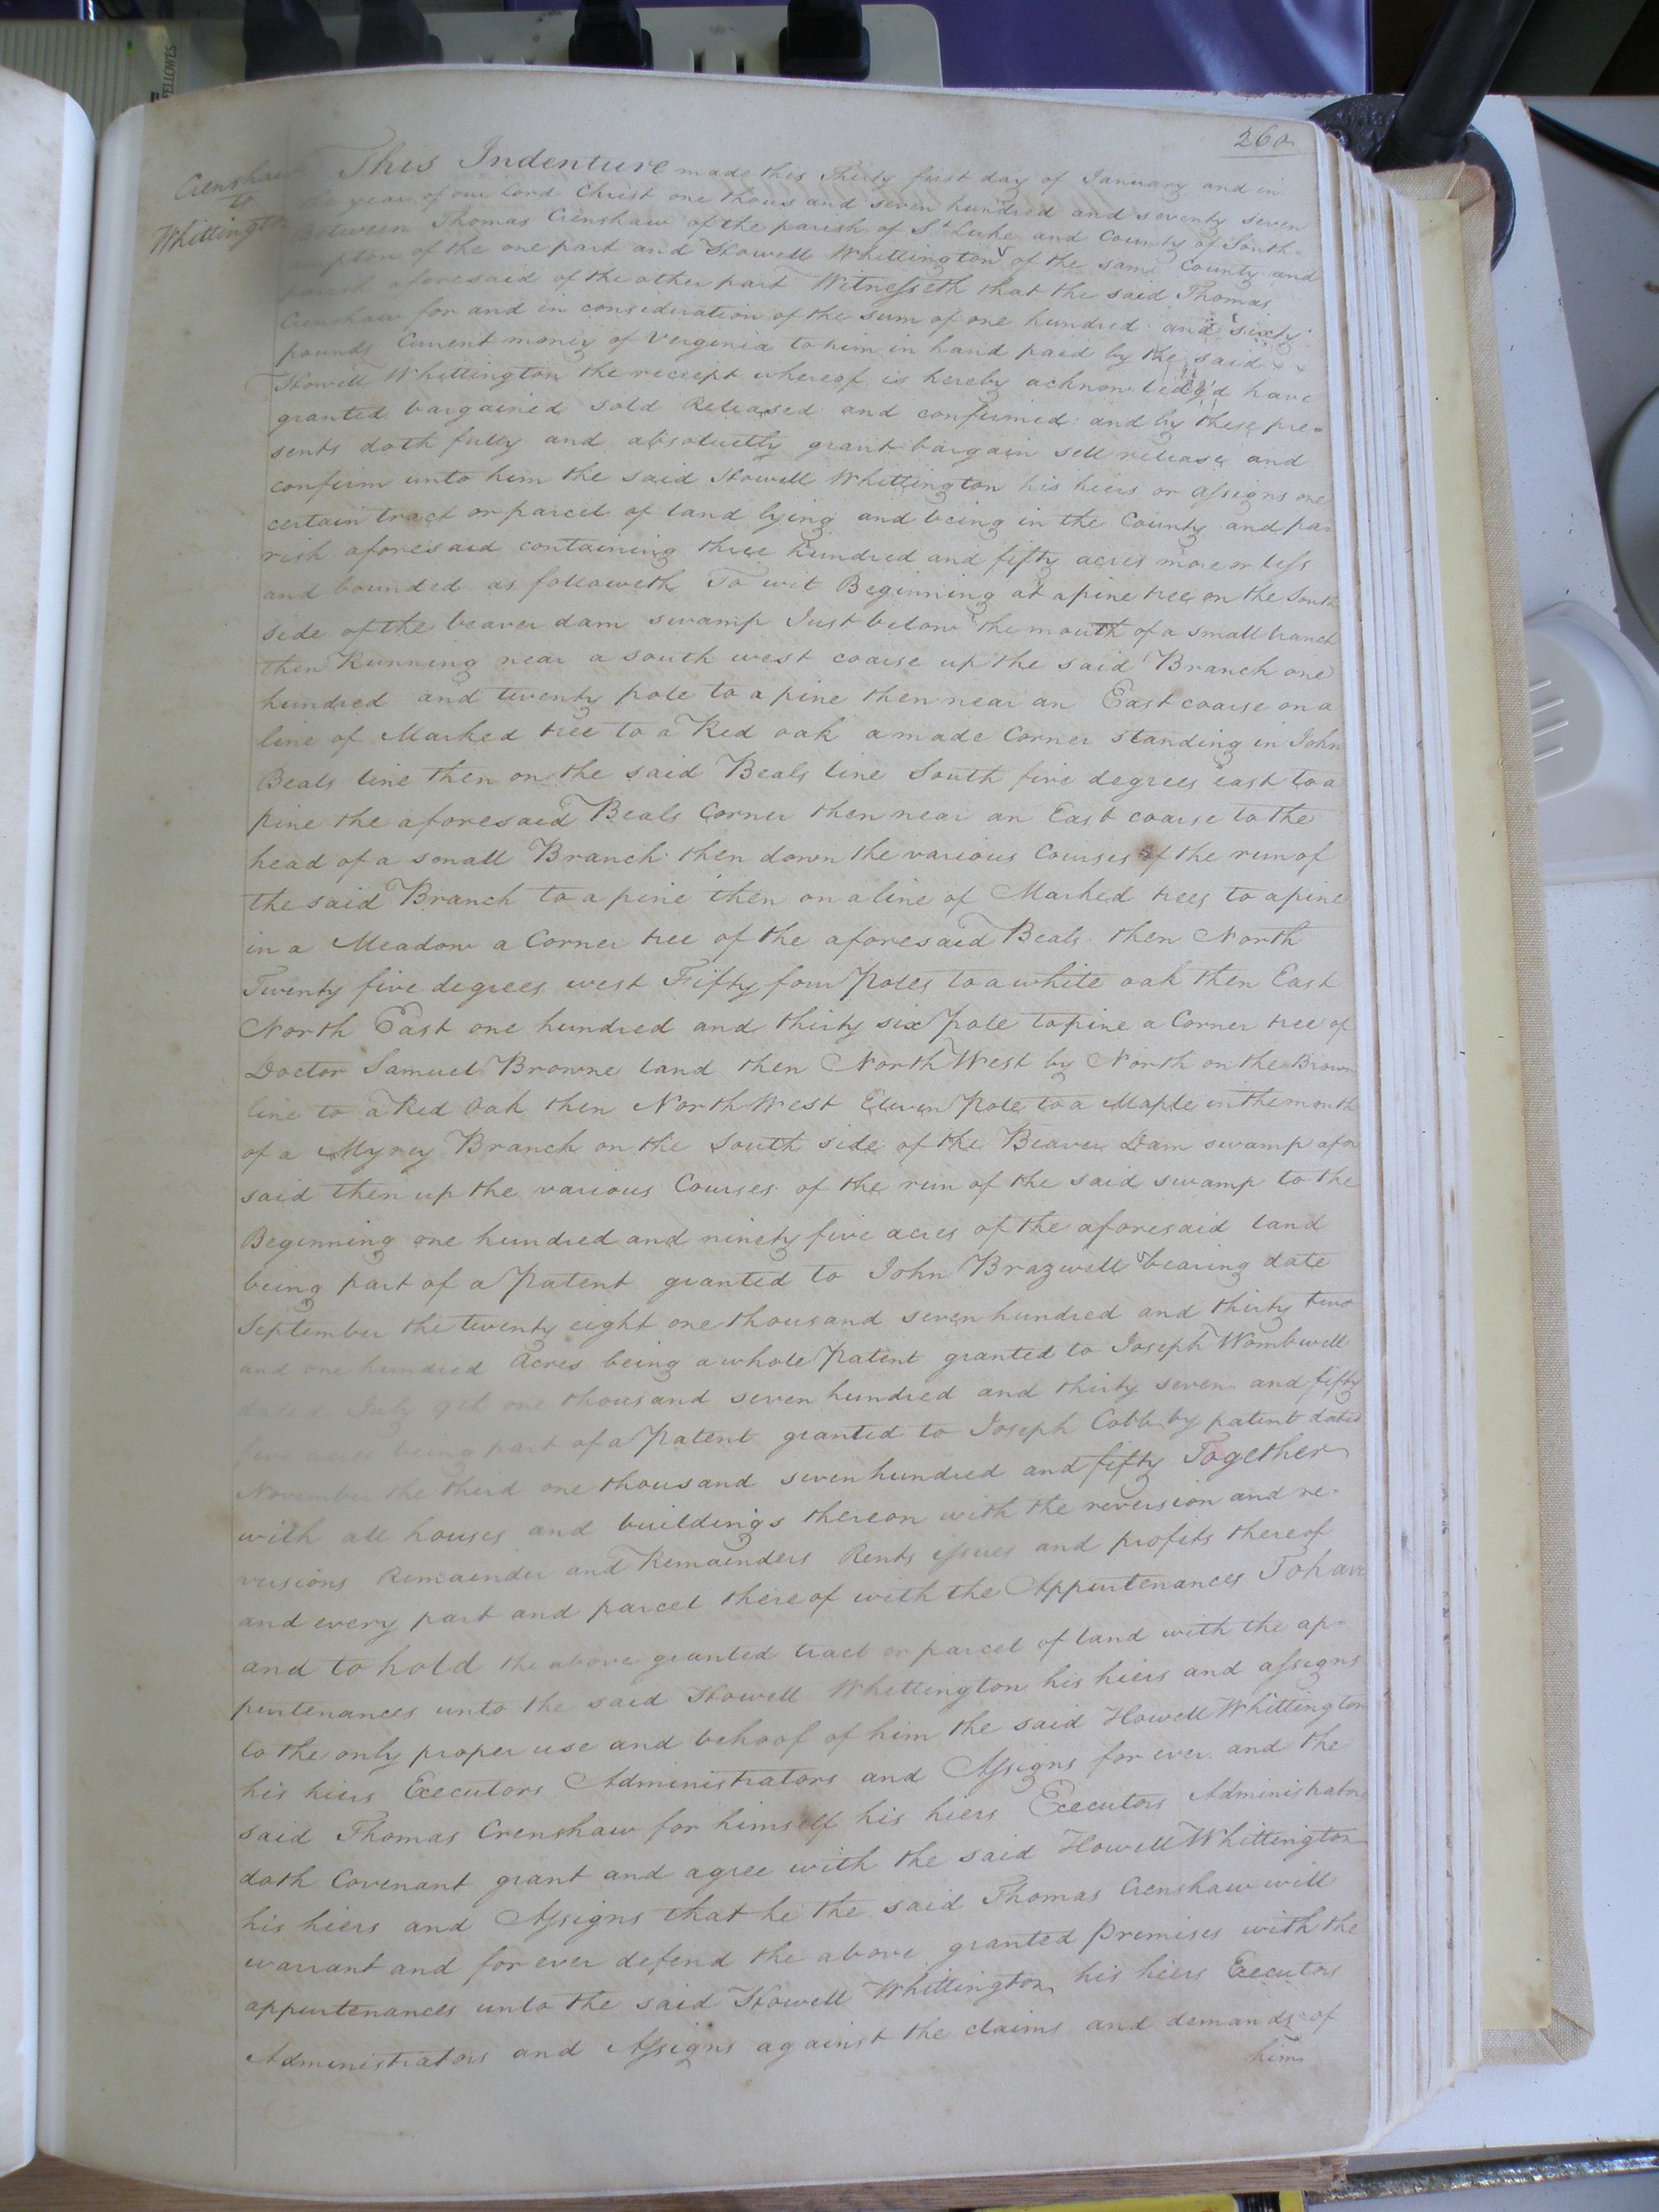 260
Crenshaw
to
Whittington
This Indenture made this Thirty first day of January and in
the year of our Lord Christ one thousand seven hundred and seventy seven
Between Thomas Crenshaw of the parish of St Luke and County of South-
ampton of the one part and Howell Whittington of the same County and
parish aforesaid of the other part Witnesseth that the said Thomas
Crenshaw for and in consideration of the sum of one hundred and sixty
pounds Current money of Verginia to him in hand paid by the said x x
Howell Whittington the receipt whereof is hereby acknowledg'd have
granted bargained sold Released and confirmed and by these pre=
sents doth fully and absolutely grant bargain sell release and
confirm unto him the said Howell Whittington his hiers or assigns one
certain tract or parcel of land lying and being in the County and pa=
rish aforesaid containing three hundred and fifty acres more or less
and bounded as followeth To wit Beginning at a pine tree on the South
side of the beaver dam swamp Just below the mouth of a small branch
then Running near a south west coarse up the said Branch one
hundred and twenty pole to a pine then near an East coarse on a
line of Marked tree to a Red oak a made Corner standing in John
Beals line then on the said Beals line South five degrees east to a
pine the aforesaid Beals Corner then near an East coarse to the
head of a small Branch then down the various Courses of the run of
the said Branch to a pine then on a line of Marked trees to a pine
in a Meadow a Corner tree of the aforesaid Beals then North
Twenty five degrees west Fifty four Poles to a white oak then East
North East one hundred and thirty six pole to pine a Corner tree of
Doctor Samuel Browne land then North West by North on the Brown
line to a Red Oak then North West Eleven Pole to a Maple in the mouth
of a Myrey Branch on the South side of the Beaver Dam swamp afor
said then up the various Courses of the run of the said swamp to the
Beginning one hundred and ninety five acres of the aforesaid land
being part of a Patent granted to John Brazwell bearing date
September the twenty eight one thousand seven hundred and thirty two
and one hundred Acres being a whole Patent granted to Joseph Wombwell
dated July 9th one thousand seven hundred and thirty seven and fifty
five acres being part of a Patent granted to Joseph Cobb by patent dated
November the third one thousand seven hundred and fifty Together
with all houses and buildings thereon with the reversion and re-
versions Remainder and Remainders Rents issues and profits thereof
and every part and parcel thereof with the Appurtenances To have
and to hold the above granted tract or parcel of land with the ap-
purtenances unto the said Howell Whittington his hiers and assigns
to the only proper use and behoof of him the said Howell Whittington
his hiers Executors Administrators and Assigns for ever and the
said Thomas Crenshaw for himself his hiers Executors Administrators
doth Covenant grant and agree with the said Howell Whittington
his hiers and Assigns that he the said Thomas Crenshaw will
warrant and for ever defend the above granted Premises with the
appurtenances unto the said Howell Whittington his hiers Executors
Administrators and Assigns against the claims and demands of
him
FELLOWES